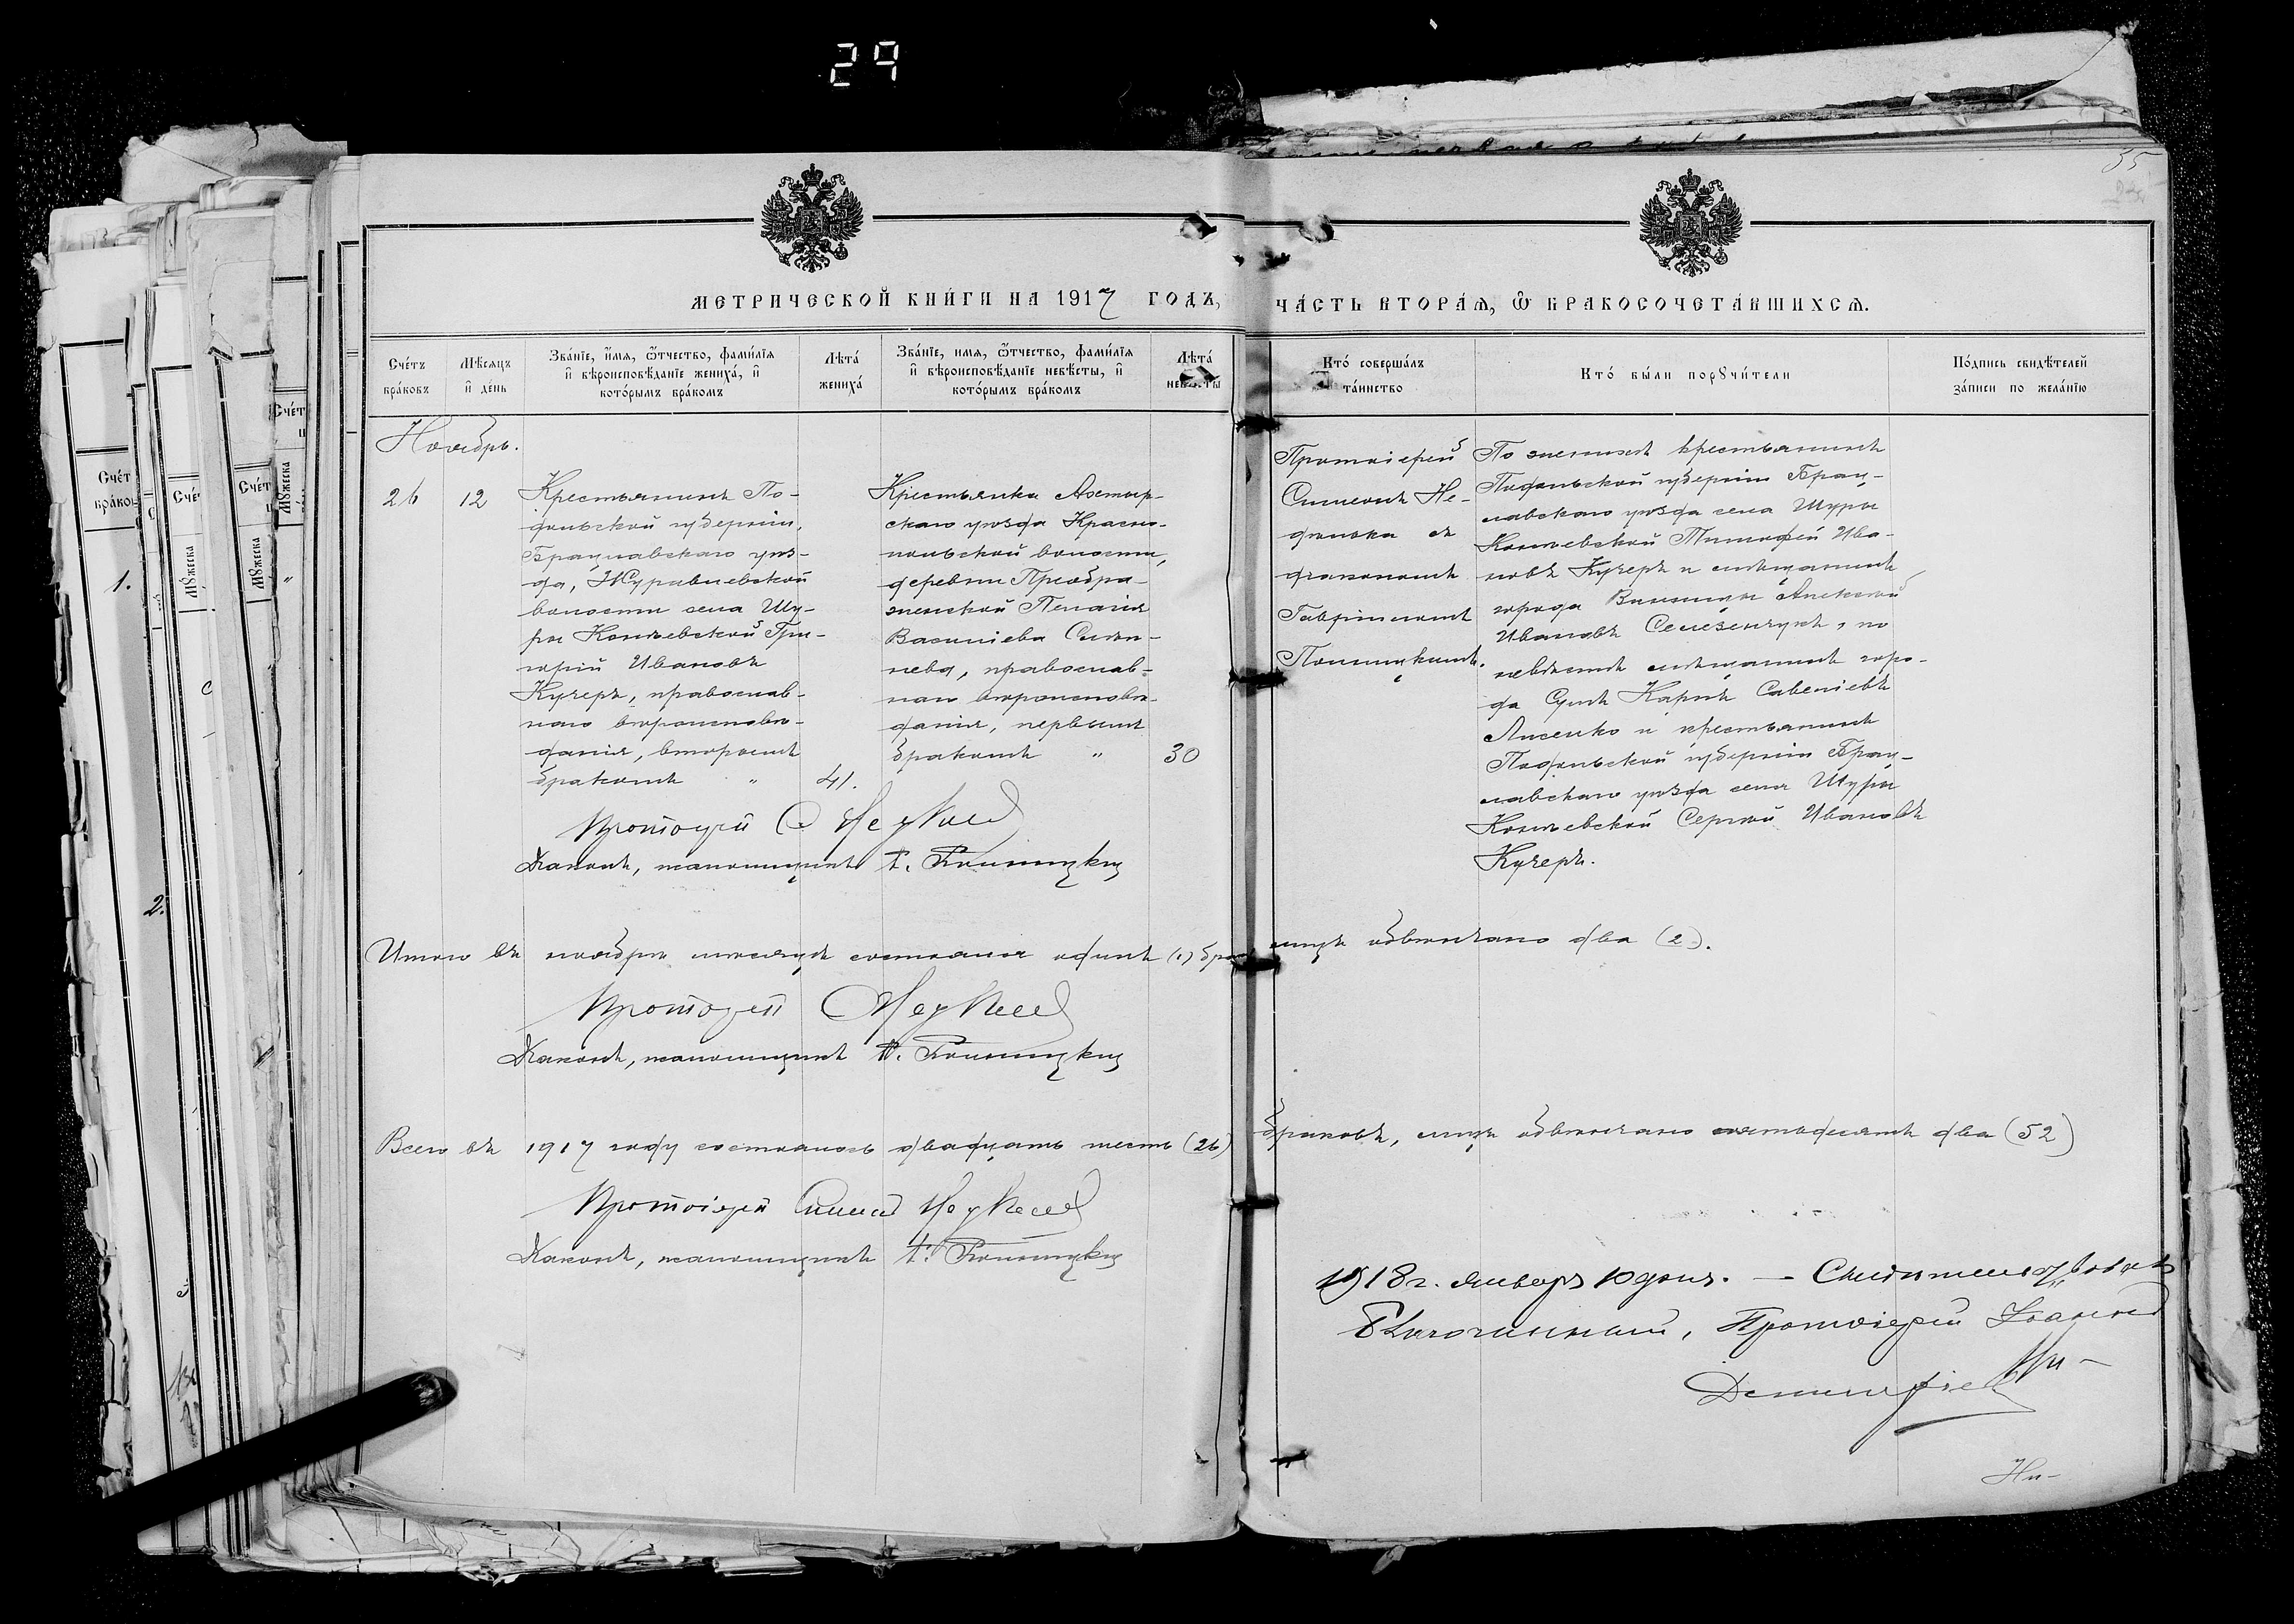 29
55
МЕТРИЧЕСКОЙ КНИ́ГИ НА 1917 ГОДЪ, ЧА́СТЬ ВТОРА́Я, Ѡ БРАКОСОЧЕТА́ВШИХСЯ.
Сче́тъ бра́ковъ
Мѣсяцъ и҆ день
Зва́нїе, и҆́мя, ѻ҆́тчество, фами́лїя и҆ вѣроисповѣ́данїе жениха́, и҆ кото́рымъ бра́комъ
Лѣта́ жениха́
Зва́нїе, имя, ѻ҆́тчество, фами́лїя и҆ вѣроисповѣ́данїе невѣ́сты, и҆ кото́рымъ бра́комъ
Лѣта́ невѣсты
Кто́ соверша́лъ та́инство
Кто́ бы́ли порꙋчи́тели
По́дпись свидѣ́телей за́писи по жела́нїю
Ноябрь.
26
12
Крестьянинъ По-
дольской губерніи,
Брацлавскаго уѣз-
да, Журавлевской
волости села Щу-
ры Копіевской Гри-
горій Ивановъ
Кучеръ, православ-
наго вѣроисповѣ-
данія, вторымъ
бракомъ "
41.
Крестьянка Ахтыр-
скаго уѣзда Красно-
польской волости,
деревни Преобра-
женской Пелагія
Василіева
нева, православ-
наго вѣроисповѣ-
данія, первымъ
бракомъ "
30
Протоіерей
Симеонъ Не-
дѣлька съ
діакономъ
Гавріиломъ
По женихѣ крестьянинъ
Подольской губерніи Брац-
лавскаго уѣзда села Щуры
Копіевской Тимофей Ива-
новъ Кучеръ и мѣщанинъ
города Винницы Алексѣй
Ивановъ Селезенчукъ, по
невѣстѣ мѣщанинъ горо-
да Сумъ Карпъ Савеліевъ
Лисенко и крестьянинъ
Подольской губерніи Брац-
лавскаго уѣзда села Щуры
Копіевской Сергѣй Ивановъ
Кучеръ.
Протоіерей С Не
Діаконъ, псаломщикъ Г.
Итого въ ноябрѣ мѣсяцѣ состоялся одинъ (1) бракъ лицъ обвѣнчано два (2).
Протоіерей С
Діаконъ, псаломщикъ Г.
Всего въ 1917 году состоялось двадцать шесть (26) браковъ, лицъ обвѣнчано пятьдесятъ два (52)
Протоіерей Симеонъ
Діаконъ, псаломщикъ Г.
1918 г. января 10 дня. — Свидѣтельствовалъ
Благочинный, Протоіерей Іоаннъ